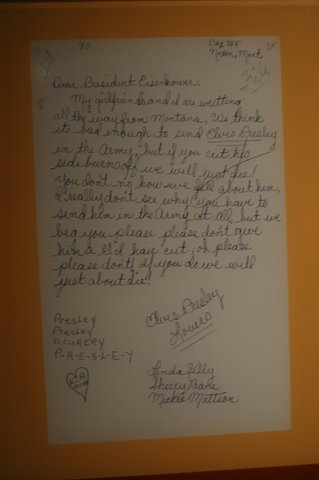 Box 755
Noxon, Mont
Dear President Eisenhower,
My girlfriend's and I are writting
all the way from Montana, We think
its bad enough to send Elvis Presley
in the Army, but if you cut his
side burns off we will just die!
You don't no how we fell about him,
I really don't see why you have to
send him in the Army at all, but we
beg you please please don't give
him a G.I. hair cut, oh please
please don't! If you do we will
just about die!
Elvis Presley
Lovers
Presley
Presley
IS OUR CRY
P-R-E-S-L-E-Y
Linda Kelly
Sherry Bane
Mickie Mattson